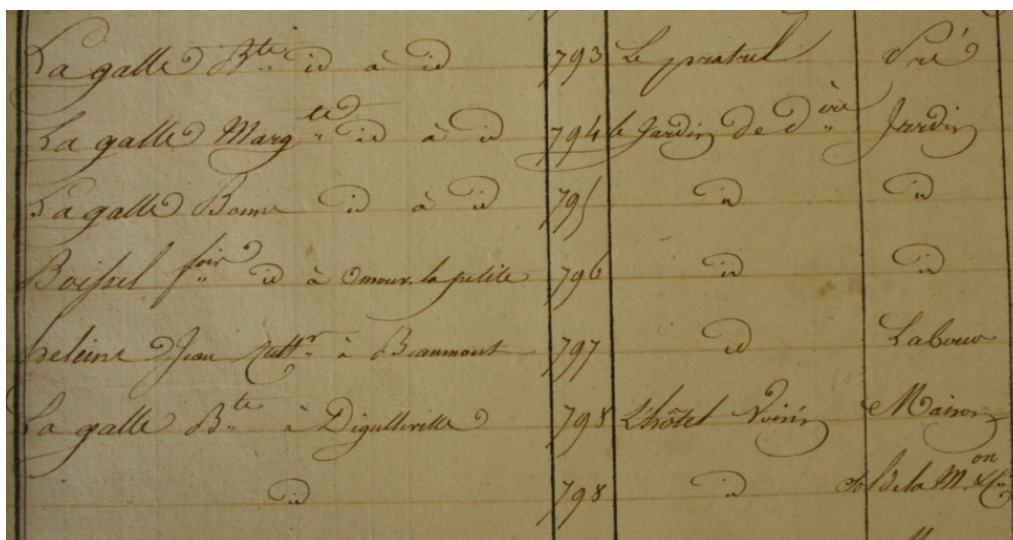 La galle Bte id à id 793 Le pratel Pré
La galle Marg te id à id 794 le Jardin de d ère Jardin
La galle Bonne id à id 795 id id
Boissel id à Omonv. la petite 796 id id
heleine Jean Cultr à Beaumont 797 id Labour
La galle Bte à Digulleville 798 L'hôtel Voisin Maison
id 798 id Sol de la Mon &